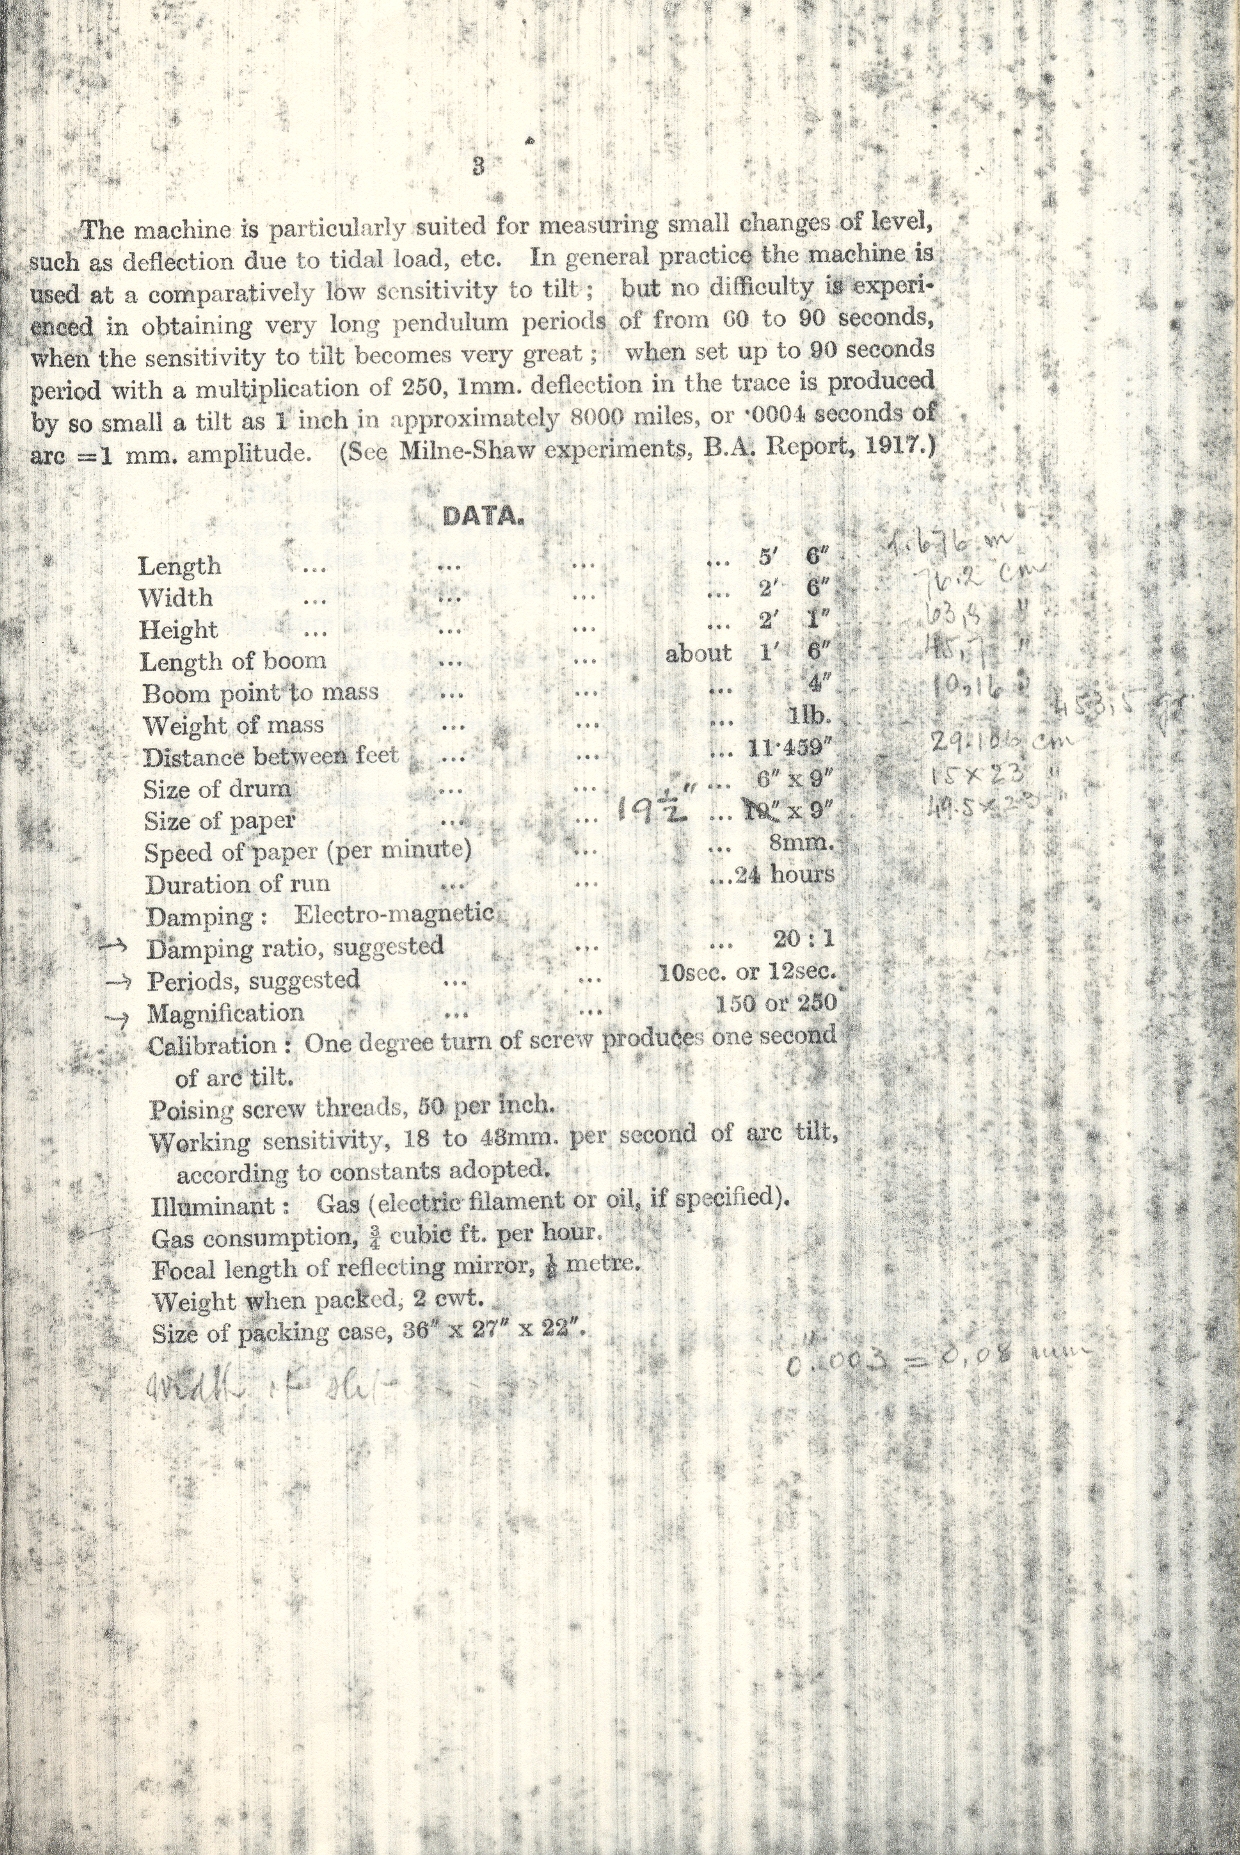 3
The machine is particularly suited for measuring small changes of level,
such as deflection due to tidal load, etc. In general practice the machine is
used at a comparatively low sensitivity to tilt ; but no difficulty is experi-
enced in obtaining very long pendulum periods of from 60 to 90 seconds,
when the sensitivity to tilt becomes very great ; when set up to 90 seconds
period with a multiplication of 250, 1mm. deflection in the trace is produced
by so small a tilt as 1 inch in approximately 8000 miles, or ·0004 seconds of
arc =1 mm. amplitude. (See Milne-Shaw experiments, B.A. Report, 1917.)
DATA.
Length ... ... ... ... 5′ 6″ 1.676 m
Width ... ... ... ... 2′ 6″ 76.2 cm
Height ... ... ... ... 2′ 1″ 63,5 "
Length of boom ... ... about 1′ 6″ 45,7 "
Boom point to mass ... ... ... 4″ 10,16 "
Weight of mass ... ... ... 1lb. 453,5 gr.
Distance between feet ... ... ... 11·459″ 29.106 cm
Size of drum ... ... ... 6″ x 9″ 15 x 23 "
Size of paper ... ... 19½″ ... 19″ x 9″ 49.5 x 23 "
Speed of paper (per minute) ... ... 8mm.
Duration of run ... ... ...24 hours
Damping : Electro-magnetic
→ Damping ratio, suggested ... ... 20 : 1
→ Periods, suggested ... ... 10sec. or 12sec.
→ Magnification ... ... 150 or 250
Calibration : One degree turn of screw produces one second
of arc tilt.
Poising screw threads, 50 per inch.
Working sensitivity, 18 to 43mm. per second of arc tilt,
according to constants adopted.
Illuminant : Gas (electric filament or oil, if specified).
Gas consumption, ¾ cubic ft. per hour.
Focal length of reflecting mirror, ½ metre.
Weight when packed, 2 cwt.
Size of packing case, 36″ x 27″ x 22″.
Width of slit 0".003 = 0,08 mm